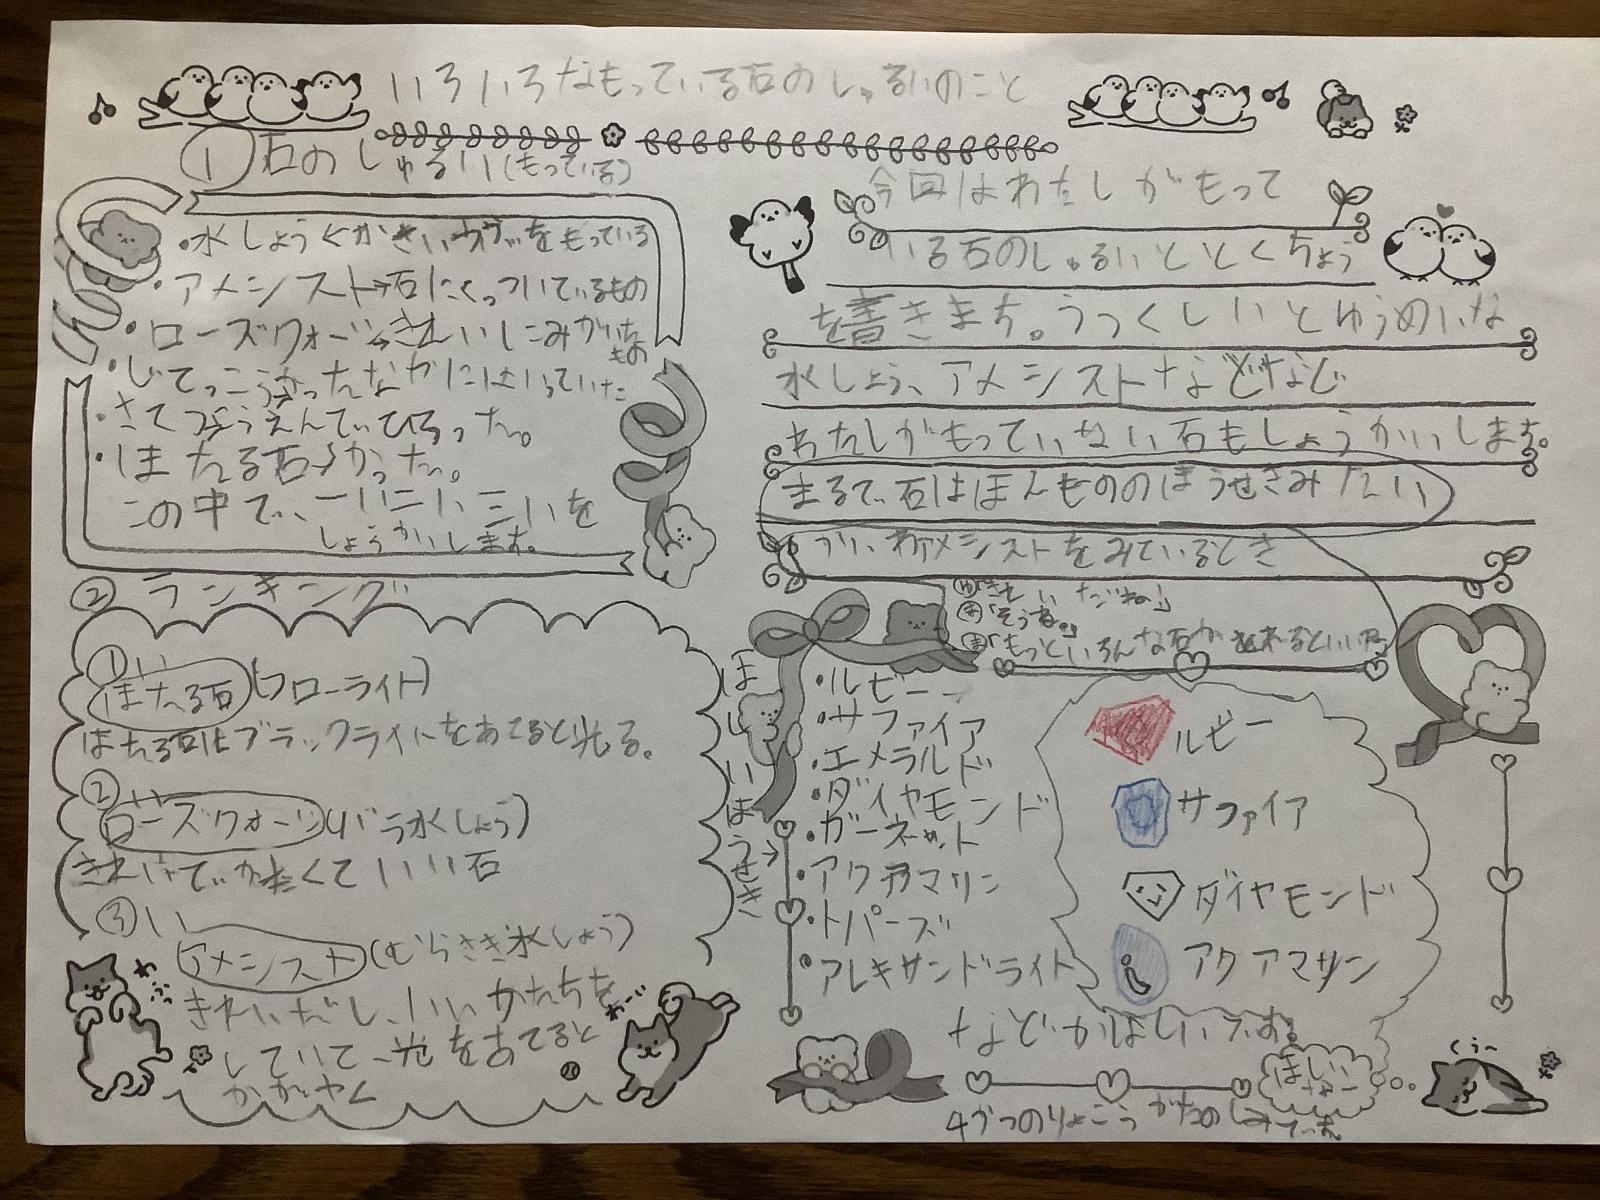 いろいろなもっている石のしゅるいのこと
① 石のしゅるい(もっている)
・水しょう かっをもっている
・アメシスト→石にくっついているもの
・ローズクォーツ→きれいにみがいたもの
・じてっこう→かったなかにはいっていた
・さてつ→こうえんでひろった。
・ほたる石→かった。
この中で、一い二い三いを
しょうかいします。
② ランキング
①い
ほたる石(フローライト)
ほたる石はブラックライトをあてると光る。
②い
ローズクォーツ(バラ水しょう)
きれいでかたくていい石
③い
アメシスト(むらさき水しょう)
きれいだし、いいかたちを
していて、光をあてると
かがやく
今回はわたしがもって
いる石のしゅるいととくちょう
を書きます。うつくしいとゆうめいな
水しょう、アメシストなどなど
わたしがもっていない石もしょうかいします。
まるで石はほんもののほうせきみたい
アメシストをみているとき
「きれいだね」
「そうね。」
「もっといろんな石がとれるといいな
ほしいほうせき→
・ルビー
・サファイア
・エメラルド
・ダイヤモンド
・ガーネット
・アクアマリン
・トパーズ
・アレキサンドライト
ルビー
サファイア
ダイヤモンド
アクアマリン
などがほしいです。
ほしいなー
くぅ〜
4がつのりょこうがたのしみです